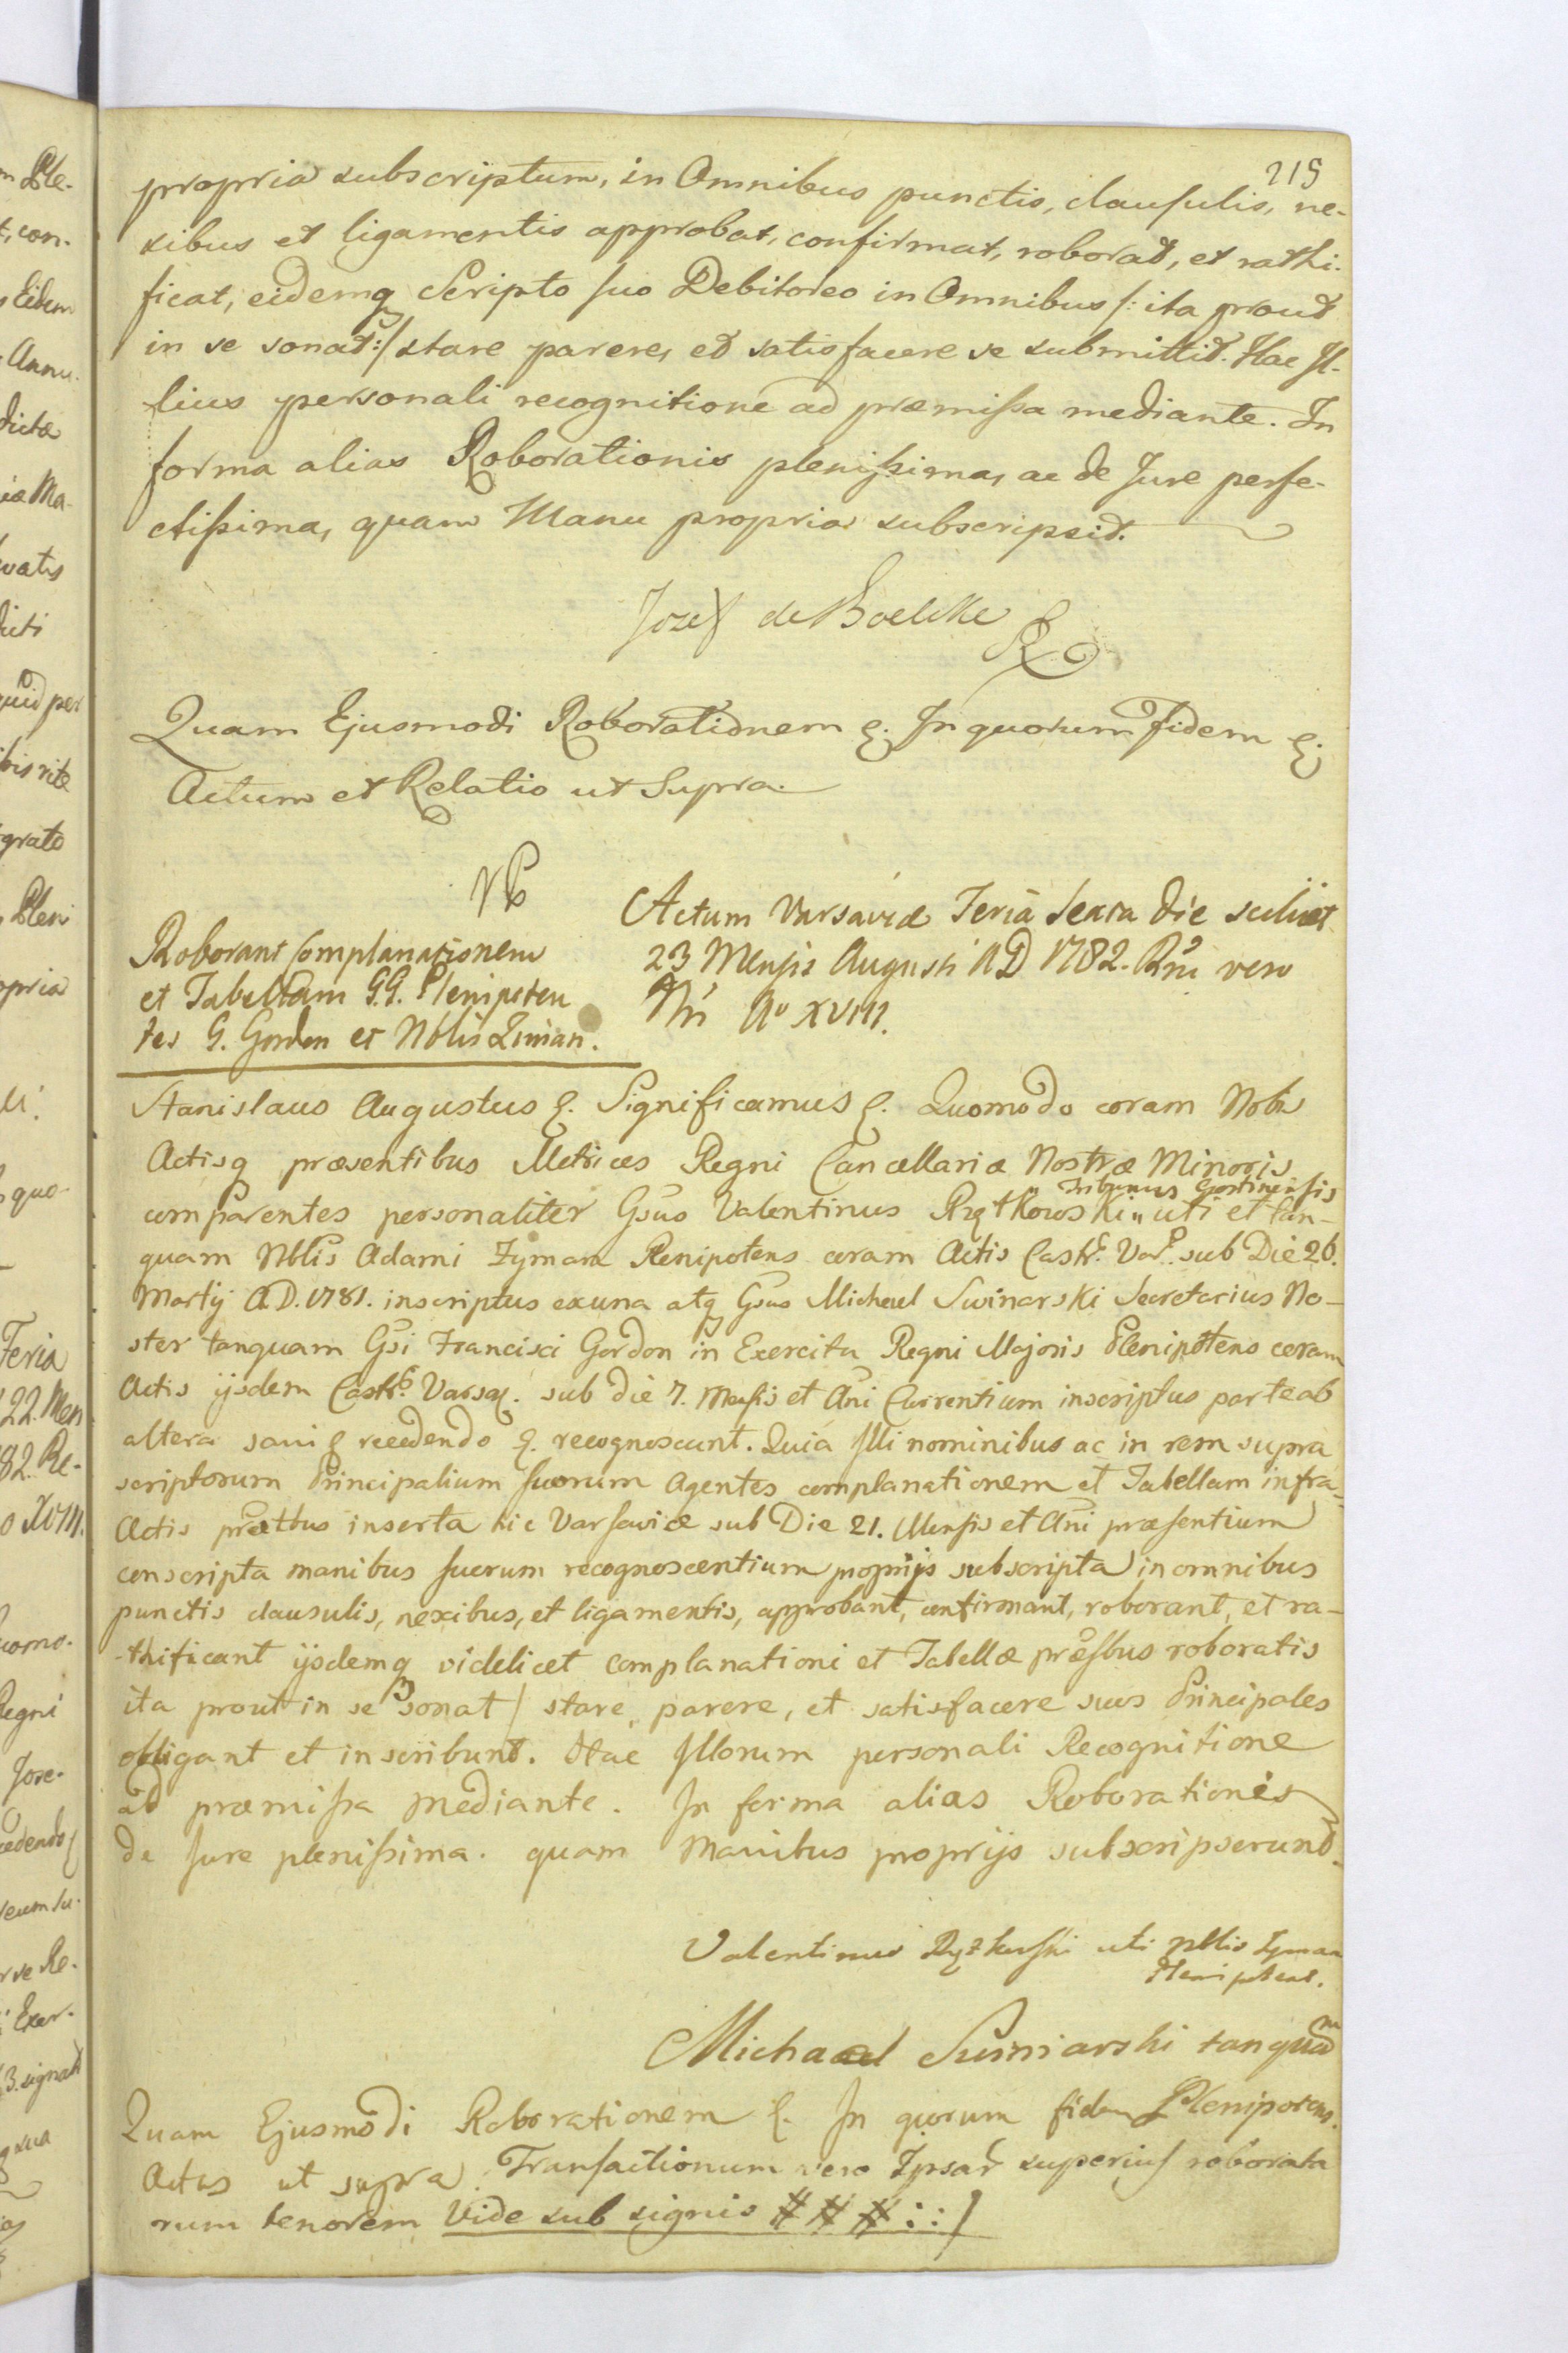 219
propria subscriptum, in Omnibus punctis, clausulis, ne-
xibus et ligamentis approbat, confirmat, roborat, et rathi-
ficat, eidemq Scripto suo Debitoreo in Omnibus /: ita prout
in se sonat :/ stare parere, et satisfacere se submittit. Hac Il-
lius personali recognitione ad præmissa mediante. In
forma alias Roborationis plenissima, ac de Jure perfe-
ctissima, quam Manu propria subscripsit.
Jozef de Boelcke
Quam Ejusmodi Roborationem &. In quorum Fidem &.
Actum et Relatio ut Supra.
Roborant Complanationem
et Tabellam G.G. Plenipoten
tes G. Gordon et Nblis Ziman.
Actum Varsaviæ Feria Sexta Die scilicet
23 Mensis Augusti AD 1782. Rni vero
Nri Ao XVIII.
Stanislaus Augustus &. Significamus &. Quomodo coram Nobis
Actisq præsentibus Metrices Regni Cancellariæ Nostræ Minoris
comparentes personaliter Gsus Valentinus Rzętkowski " Tribunus Gostinensis " uti et tan-
quam Nblis Adami Zyman Plenipotens coram Actis Castr. Var. sub Die 26.
Martij A.D. 1781. inscriptus ex una atq Gsus Michael Swinarski Secretarius No-
ster tanquam Gsi Francisci Gordon in Exercitu Regni Majoris Plenipotens coram
Actis ijsdem Castr. Varsa. sub die 7. Mensis et Ani Currentium inscriptus parte ab
altera sani & recedendo &. recognoscunt. Quia Illi nominibus ac in rem supra
scriptorum Principalium suorum Agentes complanationem et Tabellam infra
Actis prættbus inserta hic Varsaviæ sub Die 21. Mensis et Ani præsentium
conscripta manibus suorum recognoscentium proprijs subscripta in omnibus
punctis clausulis, nexibus, et ligamentis, approbant, confirmant, roborant, et ra-
-thificant ijsdemq videlicet complanationi et Tabellæ præsbus roboratis
ita prout in se sonat / stare, parere, et satisfacere suos Principales
obligant et inscribunt. Hac Illorum personali Recognitione
ad præmissa mediante. In forma alias Roborationis
de Jure plenissima. quam Manibus proprijs subscripserunt.
Valentinus uti Nblis Zyman
Plenipotens.
Michael Swiniarski tanquam
Plenipotens.
Quam Ejusmodi Roborationem &. In quorum fidem
Actus ut supra. Transactionum vero Ipsar superius roborata
rum tenorem Vide sub signis # # # : : /